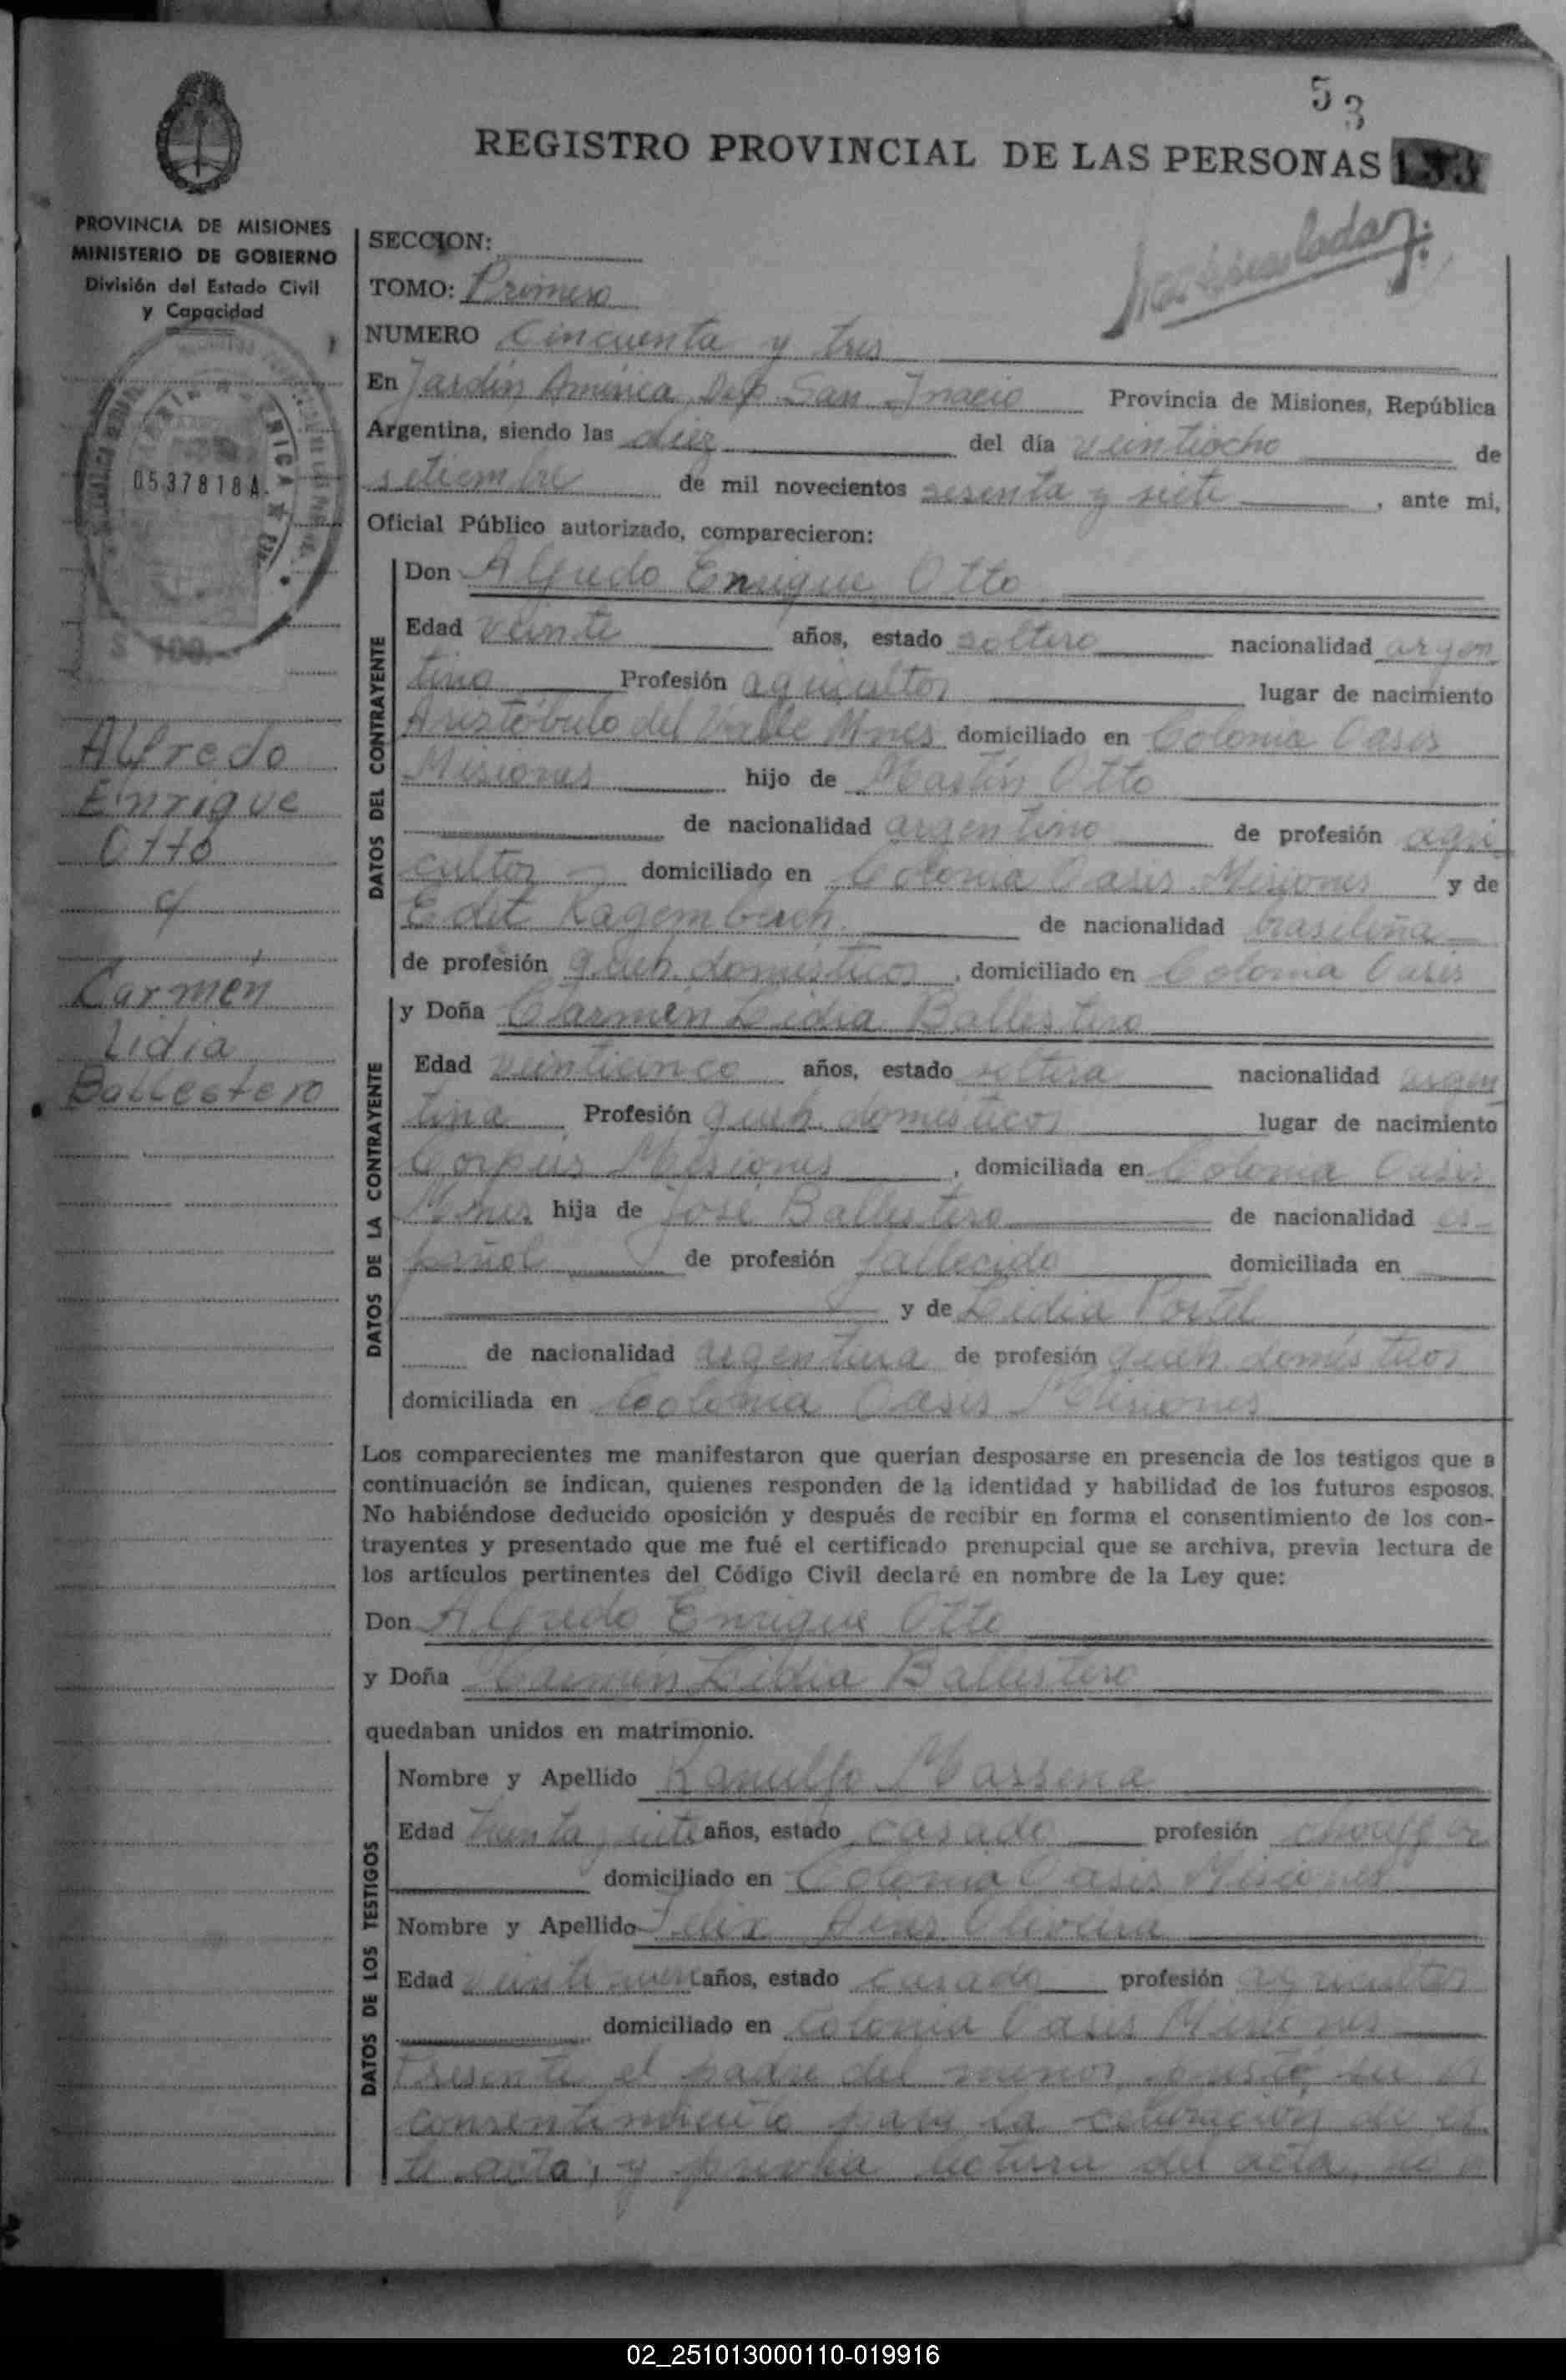 53
REGISTRO PROVINCIAL DE LAS PERSONAS
PROVINCIA DE MISIONES
MINISTERIO DE GOBIERNO
División del Estado Civil
y Capacidad
0537818A
$ 100.-
Alfredo
Enrique
Otto
c/
Carmen
Lidia
Ballestero
SECCION:
TOMO: Primero
NUMERO Cincuenta y tres
En Jardín América Dep San Ignacio Provincia de Misiones, República
Argentina, siendo las diez del día veintiocho de
setiembre de mil novecientos sesenta y siete, ante mi,
Oficial Público autorizado, comparecieron:
DATOS DEL CONTRAYENTE
Don Alfredo Enrique Otto
Edad veinte años, estado soltero nacionalidad argen
tino Profesión agricultor lugar de nacimiento
Aristóbulo del Valle Mnes domiciliado en Colonia Oasis
Misiones hijo de Martín Otto
de nacionalidad argentino de profesión agri
cultor domiciliado en Colonia Oasis Misiones y de
Edit de nacionalidad brasileña
de profesión queh. domésticos, domiciliado en Colonia Oasis
DATOS DE LA CONTRAYENTE
y Doña Carmen Lidia Ballestero
Edad veinticinco años, estado soltera nacionalidad argen
tina Profesión queh. domésticos lugar de nacimiento
Corpus Misiones, domiciliada en Colonia Oasis
Mnes hija de José Ballestero de nacionalidad es-
pañol de profesión fallecido domiciliada en
y de Lidia Portel
de nacionalidad argentina de profesión queh. domésticos
domiciliada en Colonia Oasis Misiones
Los comparecientes me manifestaron que querían desposarse en presencia de los testigos que a
continuación se indican, quienes responden de la identidad y habilidad de los futuros esposos.
No habiéndose deducido oposición y después de recibir en forma el consentimiento de los con-
trayentes y presentado que me fué el certificado prenupcial que se archiva, previa lectura de
los artículos pertinentes del Código Civil declaré en nombre de la Ley que:
Don Alfredo Enrique Otto
y Doña Carmen Lidia Ballestero
quedaban unidos en matrimonio.
DATOS DE LOS TESTIGOS
Nombre y Apellido Ranulfo Massena
Edad treinta y siete años, estado casado profesión
domiciliado en Colonia Oasis Misiones
Nombre y Apellido Felix Oliveira
Edad años, estado casado profesión agricultor
domiciliado en Colonia Oasis Misiones
Presente el padre del menor, prestó su
consentimiento para la celebración de es
te acto, y previa lectura del acta,
02_251013000110-019916